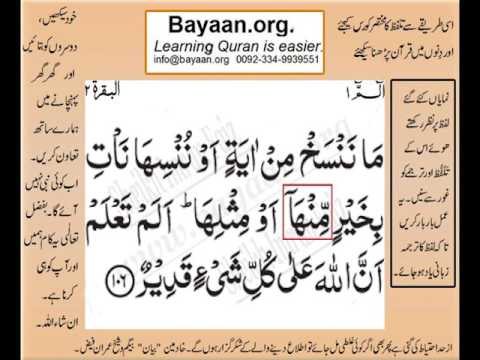 Bayaan.org.
Learning Quran is easier.
info@bayaan.org 0092-334-9939551
اسی طریقے سے تلفظ کا مختصر کورس کیجئے
اور دِنوں میں قرآن پڑھنا سیکھئے
خود سیکھیں،
دوسروں کو بتائیں
اور گھر گھر
پہنچانے میں
ہمارے ساتھ
تعاون کریں۔
اب کوئی نبی نہیں
آئے گا۔ بفضل
تعالٰی یہ کام ہمیں
اور آپ کو ہی
کرنا ہے۔
ان شاء اللہ۔
الۤمّۤ ١
البقرة ٢
مَا نَنْسَخْ مِنْ اٰيَةٍ اَوْ نُنْسِهَا نَاْتِ
بِخَيْرٍ مِّنْهَاۤ اَوْ مِثْلِهَا ؕ اَلَمْ تَعْلَمْ
اَنَّ اللّٰهَ عَلٰى كُلِّ شَىْءٍ قَدِيْرٌ ١٠٦
نمایاں کئے گئے
لفظ پر نظر رکھتے
ھوئے اس کے
تلفُّظ اور ترجمے کو
غور سے سنیں۔ یہ
عمل بار بار کریں
تاکہ لفظ کا ترجمہ
زبانی یاد ہو جائے۔
از حد احتیاط کی گئی ہے پھر بھی اگر کوئی غلطی مل جائے تو اطلاع دینے والے کے شکر گزار ہوں گے۔ خادمین "بیان" بیگم و شیخ عمران فیض۔